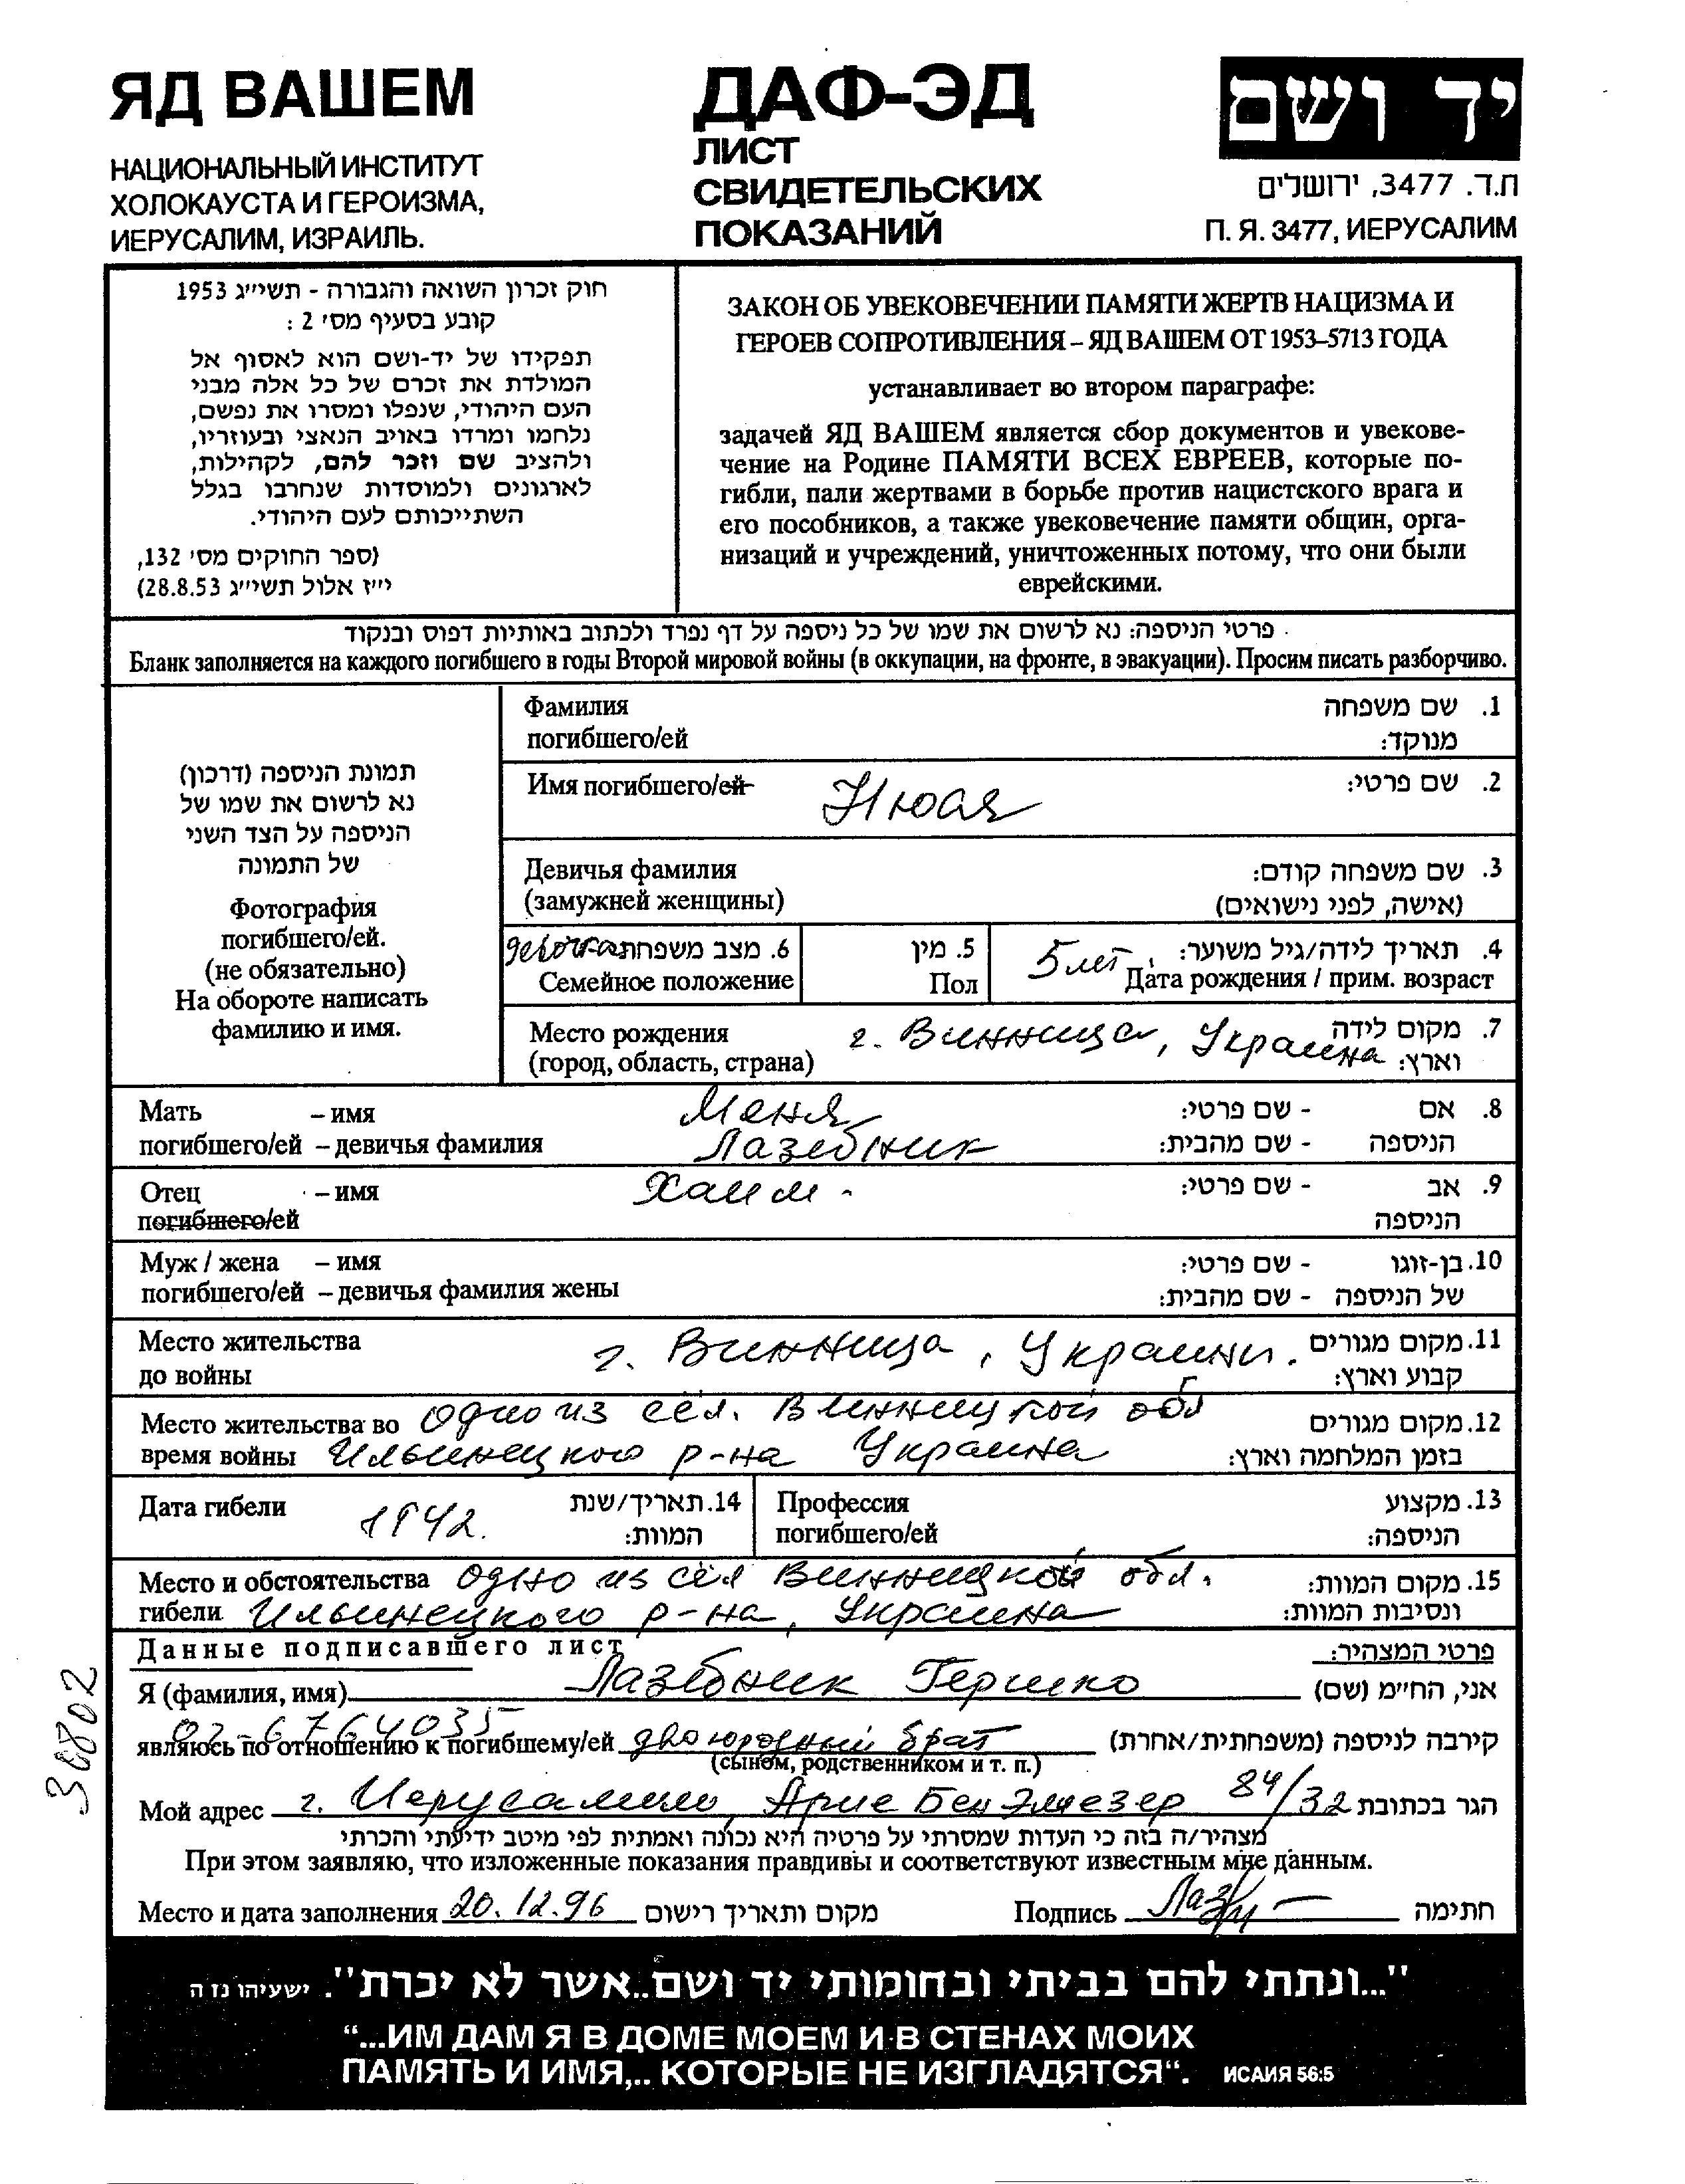 ЯД ВАШЕМ
НАЦИОНАЛЬНЫЙ ИНСТИТУТ
ХОЛОКАУСТА И ГЕРОИЗМА,
ИЕРУСАЛИМ, ИЗРАИЛЬ.
ДАФ-ЭД
ЛИСТ
СВИДЕТЕЛЬСКИХ
ПОКАЗАНИЙ
יד ושם
ת.ד. 3477, ירושלים
П. Я. 3477, ИЕРУСАЛИМ
חוק זכרון השואה והגבורה - תשי״ג 1953
קובע בסעיף מס׳ 2 :
תפקידו של יד-ושם הוא לאסוף אל
המולדת את זכרם של כל אלה מבני
העם היהודי, שנפלו ומסרו את נפשם,
נלחמו ומרדו באויב הנאצי ובעוזריו,
ולהציב שם וזכר להם, לקהילות,
לארגונים ולמוסדות שנחרבו בגלל
השתייכותם לעם היהודי.
(ספר החוקים מס׳ 132,
י״ז אלול תשי״ג 28.8.53)
ЗАКОН ОБ УВЕКОВЕЧЕНИИ ПАМЯТИ ЖЕРТВ НАЦИЗМА И
ГЕРОЕВ СОПРОТИВЛЕНИЯ – ЯД ВАШЕМ ОТ 1953–5713 ГОДА
устанавливает во втором параграфе:
задачей ЯД ВАШЕМ является сбор документов и увекове-
чение на Родине ПАМЯТИ ВСЕХ ЕВРЕЕВ, которые по-
гибли, пали жертвами в борьбе против нацистского врага и
его пособников, а также увековечение памяти общин, орга-
низаций и учреждений, уничтоженных потому, что они были
еврейскими.
פרטי הניספה: נא לרשום את שמו של כל ניספה על דף נפרד ולכתוב באותיות דפוס ובנקוד
Бланк заполняется на каждого погибшего в годы Второй мировой войны (в оккупации, на фронте, в эвакуации). Просим писать разборчиво.
תמונת הניספה (דרכון)
נא לרשום את שמו של
הניספה על הצד השני
של התמונה
Фотография
погибшего/ей.
(не обязательно)
На обороте написать
фамилию и имя.
Фамилия 1. שם משפחה
погибшего/ей מנוקד:
Имя погибшего/ей Нюся 2. שם פרטי:
Девичья фамилия 3. שם משפחה קודם:
(замужней женщины) (אישה, לפני נישואים)
6. מצב משפחתי 5. מין 5 лет 4. תאריך לידה/גיל משוער:
Семейное положение Пол Дата рождения / прим. возраст
Место рождения г. Винница, Украина 7. מקום לידה
(город, область, страна) וארץ:
Мать – имя Меня 8. אם - שם פרטי:
погибшего/ей – девичья фамилия Лазебник הניספה - שם מהבית:
Отец – имя Хаим. 9. אב - שם פרטי:
погибшего/ей הניספה
Муж / жена – имя 10. בן-זוגו - שם פרטי:
погибшего/ей – девичья фамилия жены של הניספה - שם מהבית:
Место жительства г. Винница, Украины. 11. מקום מגורים
до войны קבוע וארץ:
Место жительства во одно из сёл. Винницкой обл 12. מקום מגורים
время войны Ильинецкого р-на Украина בזמן המלחמה וארץ:
Дата гибели 1942. 14. תאריך/שנת Профессия 13. מקצוע
המוות: погибшего/ей הניספה:
Место и обстоятельства одно из сёл Винницкой обл. 15. מקום המוות:
гибели Ильинецкого р-на, Украина ונסיבות המוות:
Данные подписавшего лист פרטי המצהיר:
Я (фамилия, имя) Лазебник Гершко אני, הח״מ (שם)
02-6764035
являюсь по отношению к погибшему/ей двоюродный брат קירבה לניספה (משפחתית/אחרת)
(сыном, родственником и т. п.)
Мой адрес г. Иерусалим, Арие Бен Элиезер 84/32 הגר בכתובת
מצהיר/ה בזה כי העדות שמסרתי על פרטיה היא נכונה ואמתית לפי מיטב ידיעתי והכרתי
При этом заявляю, что изложенные показания правдивы и соответствуют известным мне данным.
Место и дата заполнения 20.12.96 מקום ותאריך רישום Подпись Лаз חתימה
38802
"...ונתתי להם בביתי ובחומותי יד ושם..אשר לא יכרת". ישעיהו נז ה
“...ИМ ДАМ Я В ДОМЕ МОЕМ И В СТЕНАХ МОИХ
ПАМЯТЬ И ИМЯ,.. КОТОРЫЕ НЕ ИЗГЛАДЯТСЯ“. ИСАИЯ 56:5